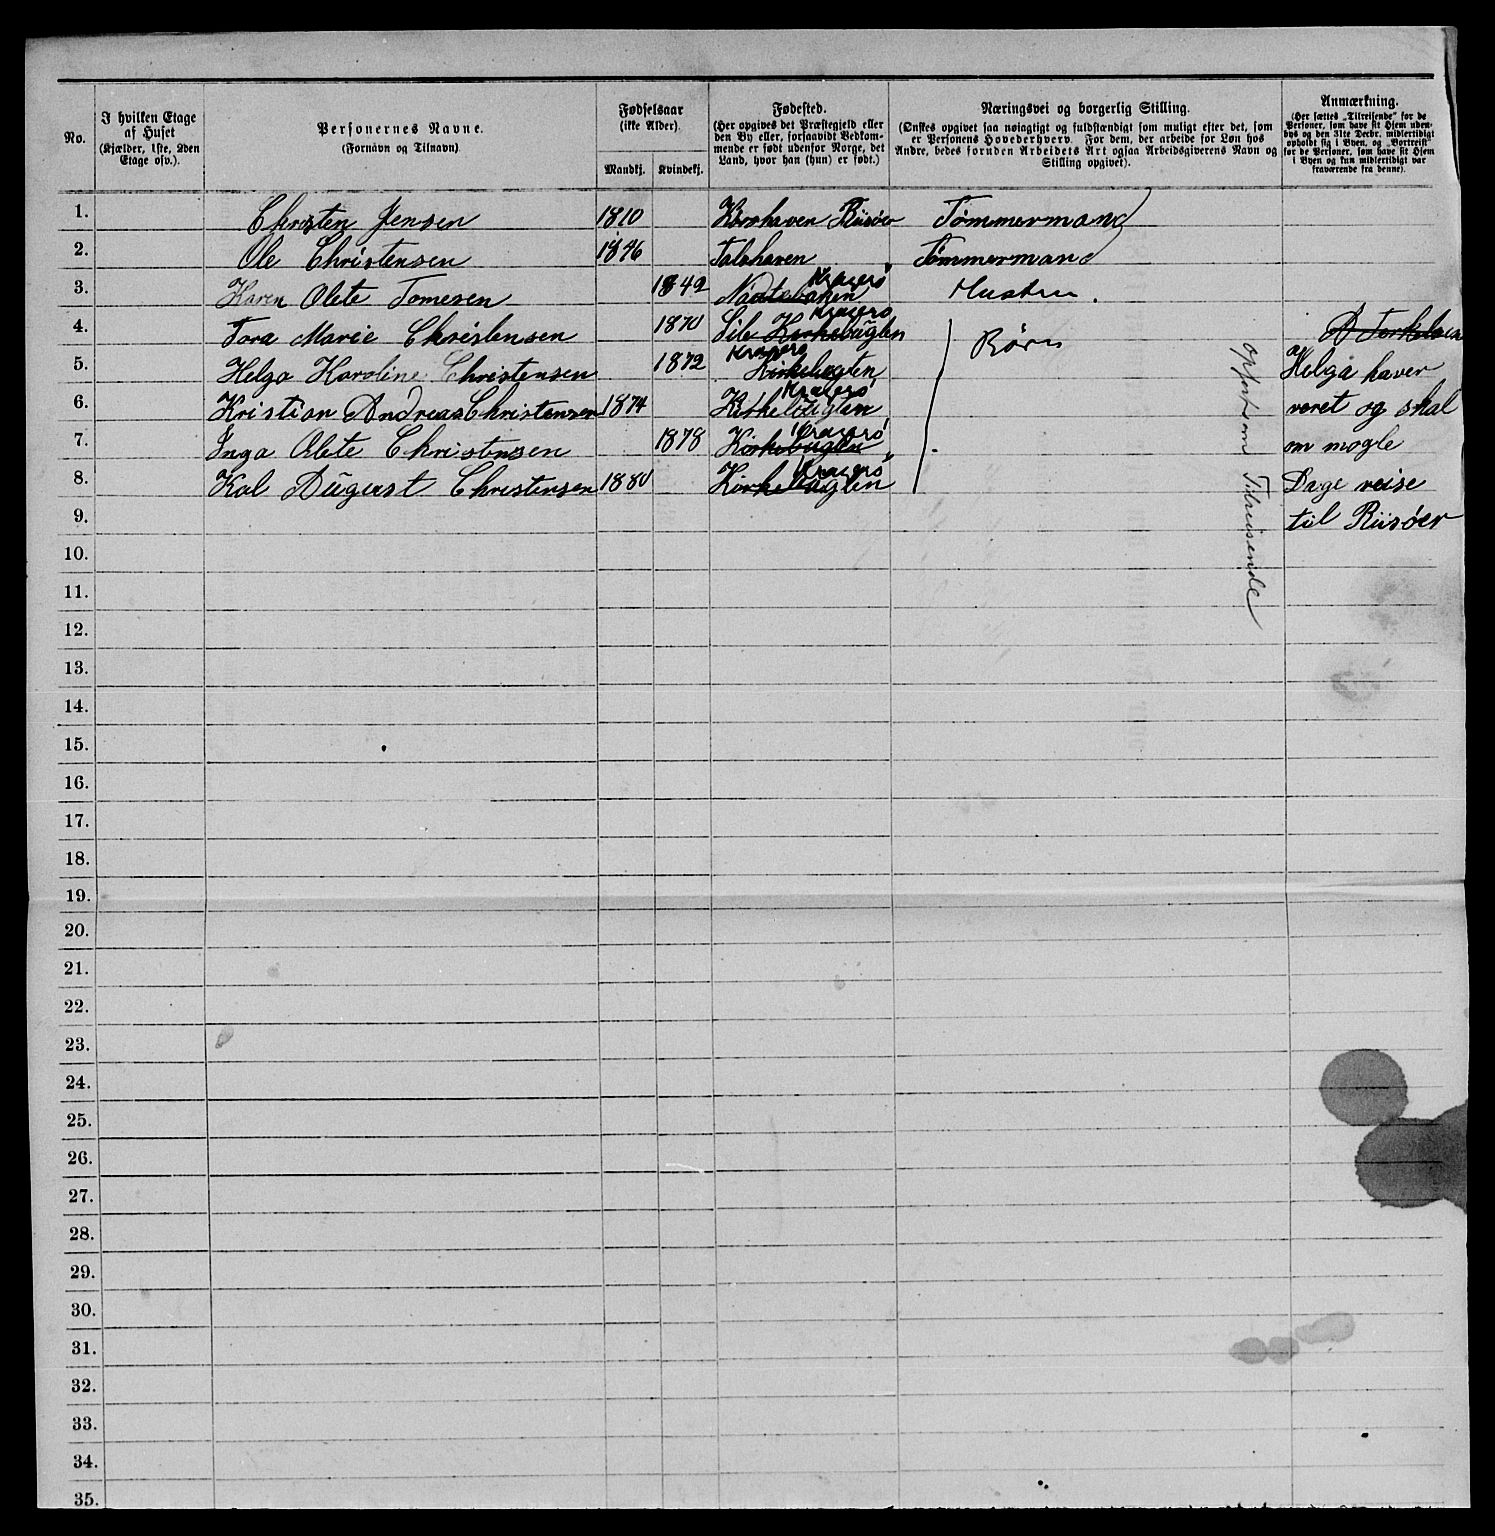 No.
I hvilken Etage
af Huset
(Kjælder, 1ste, 2den
Etage osv.).
Personernes Navne.
(Fornavn og Tilnavn)
Fødselsaar
(ikke Alder).
Mandkj. Kvindekj.
Fødested.
(Her opgives det Præstegjeld eller
den By eller, forsaavidt Vedkom-
mende er født udenfor Norge, det
Land, hvor han (hun) er født.)
Næringsvei og borgerlig Stilling.
(Ønskes opgivet saa nøiagtigt og fuldstændigt som muligt efter det, som
er Personens Hovederhverv. For dem, der arbeide for Løn hos
Andre, bedes foruden Arbeidets Art ogsaa Arbeidsgiverens Navn og
Stilling opgivet).
Anmærkning.
(Her sættes „Tilreisende“ for de
Personer, som have sit Hjem uden-
bys og den 31te Decbr. midlertidigt
opholdt sig i Byen, og „Bortreist“
for de Personer, som have sit Hjem
i Byen og kun midlertidigt var
fraværende fra denne).
1. Christen Jensen 1810 Korshaven Riisøer Tømmermand
2. Ole Christensen 1846 Tømmermand
3. Karen Olete Tomesen 1842 Kragerø Hustru.
4. Tora Marie Christensen 1870 Sile Kirkebugten Kragerø Børn
5. Helga Karoline Christensen 1872 Kirkebugten Kragerø Helga haver
6. Kristian Andreas Christensen 1874 Kirkebugten Kragerø veret og skal
7. Inga Olete Christensen 1878 Kirkebugten Kragerø om nogle
8. Kal August Christensen 1880 Kirkebugten Kragerø Dage reise
9. til Riisøer
opført som Tilreisende
10.
11.
12.
13.
14.
15.
16.
17.
18.
19.
20.
21.
22.
23.
24.
25.
26.
27.
28.
29.
30.
31.
32.
33.
34.
35.